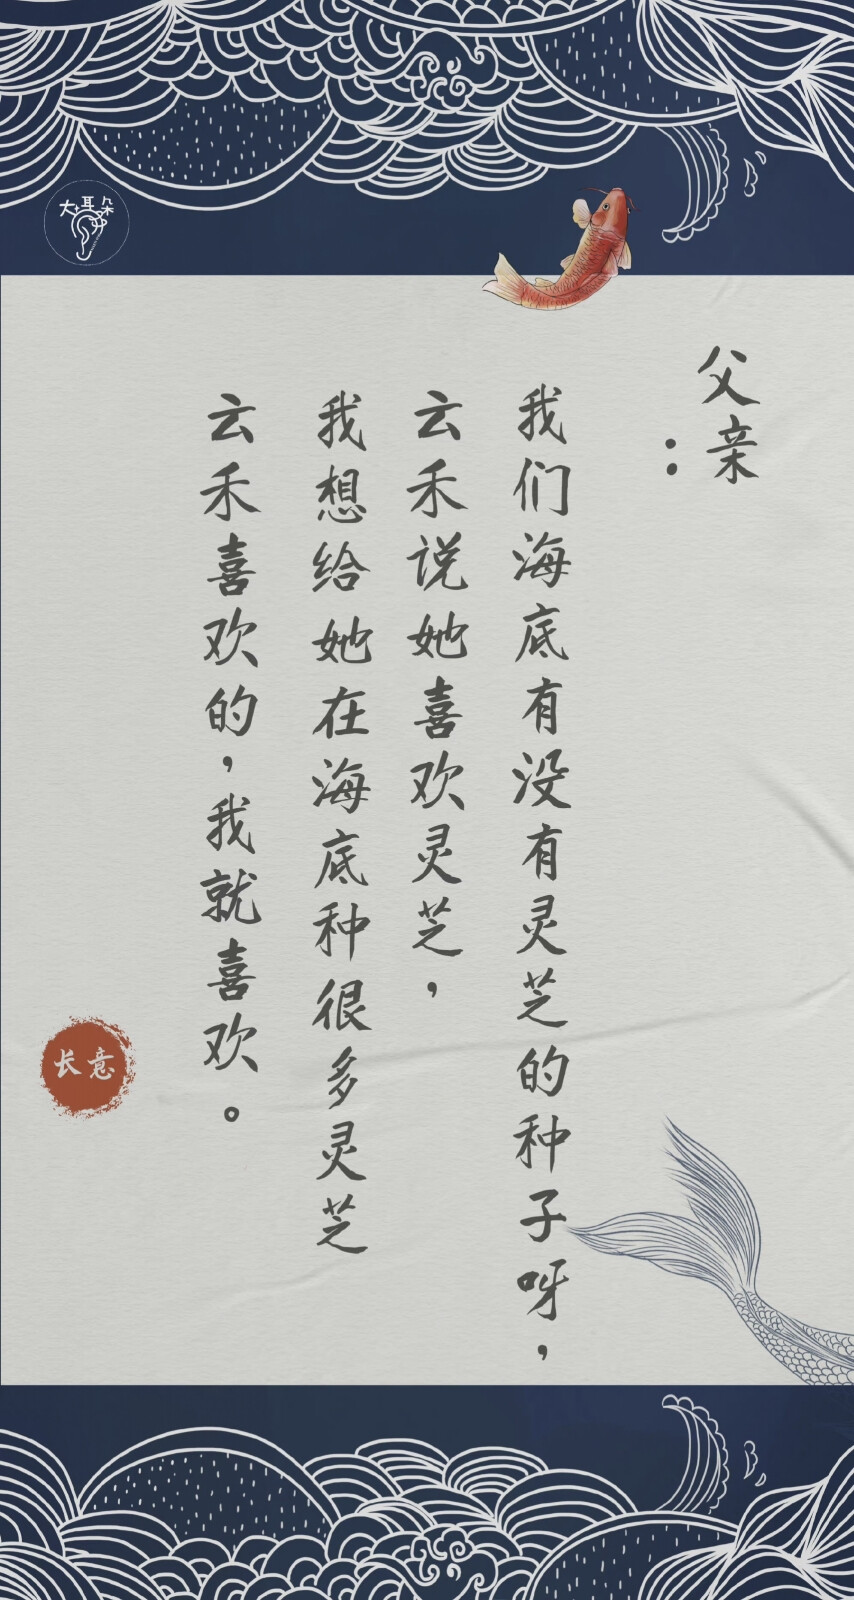 大耳朵
父亲：
我们海底有没有灵芝的种子呀，
云禾说她喜欢灵芝，
我想给她在海底种很多灵芝
云禾喜欢的，我就喜欢。
长意